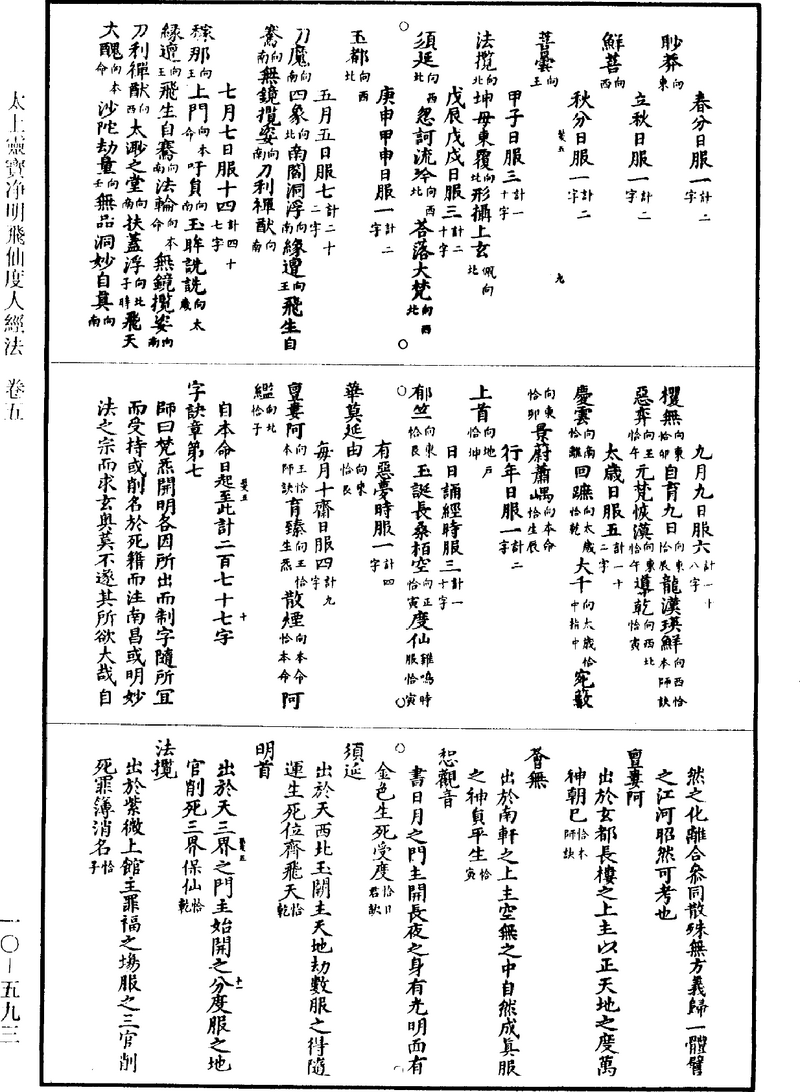 太上靈寶淨明飛仙度人經法　卷五
一〇—五九三
春分日服一計二字
眇莽向東
立秋日服一計二字
鮮菩向西
秋分日服一計二字
菩曇向王
甲子日服三計一十字
法攬向北坤母東覆向北形攝上玄佩向北
戊辰戊戌日服三計二十字
須延向西北忽訶流吟向西北荅落大梵向西北
庚申甲申日服一計二字
玉都向西北
五月五日服七計二十二字
刀魔向南四象向北南閻洞浮向南緣邅向王飛生自
騫向南無鏡攬姿向南刀利禪猷向南
七月七日服十四計四十七字
稼那向王上門向本命吁員向南玉眸詵詵向太歲
緣邅向王飛生自騫向南法輪向本命無鏡攬姿向南
刀利禪猷向西太瀮之堂向南扶蓋浮向北子時飛天
大醜向本命沙陀劫量向壬無品洞妙自真向南
九月九日服六計一十八字
櫻無向東恰卯自育九日向東恰辰龍漢瑛鮮向西恰本師訣
惡弈向王恰午元梵恢漠向東恰午導乾向西北恰寅
太歲日服五計一十二字
慶雲向南恰離回蹠向太歲恰乾大千向太歲恰中指中宛藪
向東恰卯景蔚蕭嵎向本命恰生辰
行年日服一計二字
上首向地戶恰坤
日日誦經時服三計一十字
郁竺向東恰艮玉誕長桑栢空向正恰寅度仙雞鳴時服恰寅
有惡夢時服一計四字
華莫延由向東恰艮
每月十齋日服四計九字
亶婁阿向王恰本師訣育臻向王恰生炁散煙向本命恰本命阿
䥯向北恰子
自本命日起至此計二百七十七字
字訣章第七
師曰梵炁開明各因所出而制字隨所宜
而受持或削名於死籍而注南昌或明妙
法之宗而求玄奧莫不遂其所欲大哉自
然之化離合參同散殊無方義歸一體譬
之江河昭然可考也
亶婁阿
出於玄都長樓之上主以正天地之度萬
神朝已恰本師訣
薈無
出於南軒之上主空無之中自然成真服
之神貞平生恰寅
恕觀音
書日月之門主開長夜之身有光明面有
金色生死受度恰日君訣
須延
出於天西北玉關主天地劫數服之得隨
運生死位齊飛天恰乾
明首
出於天三界之門主始開之分度服之地
官削死三界保仙恰乾
法攬
出於紫微上館主罪福之場服之三官削
死罪簿消名恰子